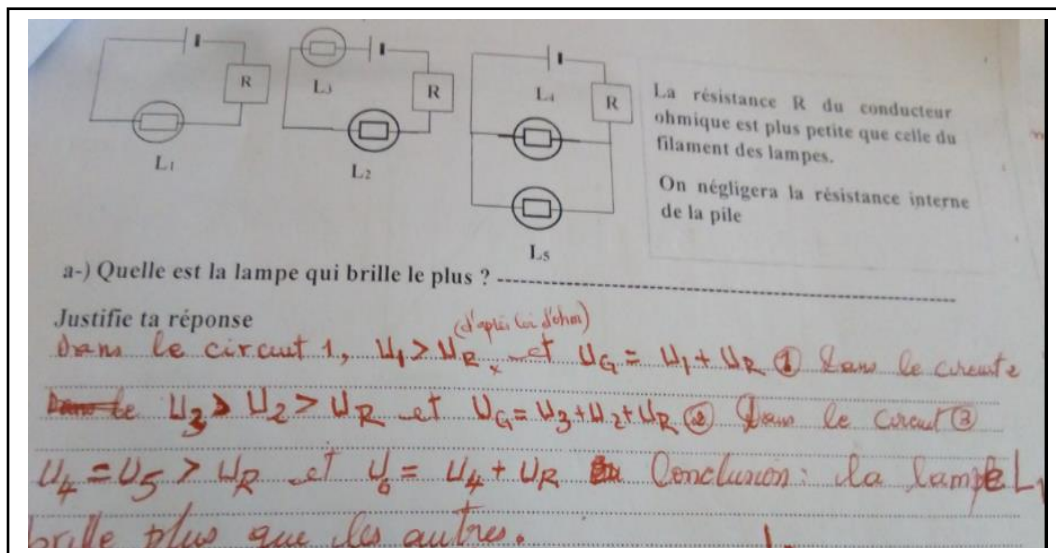 R
L₁
L₃
R
L₂
L₄
R
L₅
La résistance R du conducteur
ohmique est plus petite que celle du
filament des lampes.
On négligera la résistance interne
de la pile
a-) Quelle est la lampe qui brille le plus ?
Justifie ta réponse
(d'après loi d'ohm)
Dans le circuit 1, U₁ > U_R et U_G = U₁ + U_R ① Dans le circuit 2
U₃ > U₂ > U_R et U_G = U₃ + U₂ + U_R ② Dans le circuit ③
U₄ = U₅ > U_R et U_G = U₄ + U_R Conclusion : la lampe L₁
brille plus que les autres.